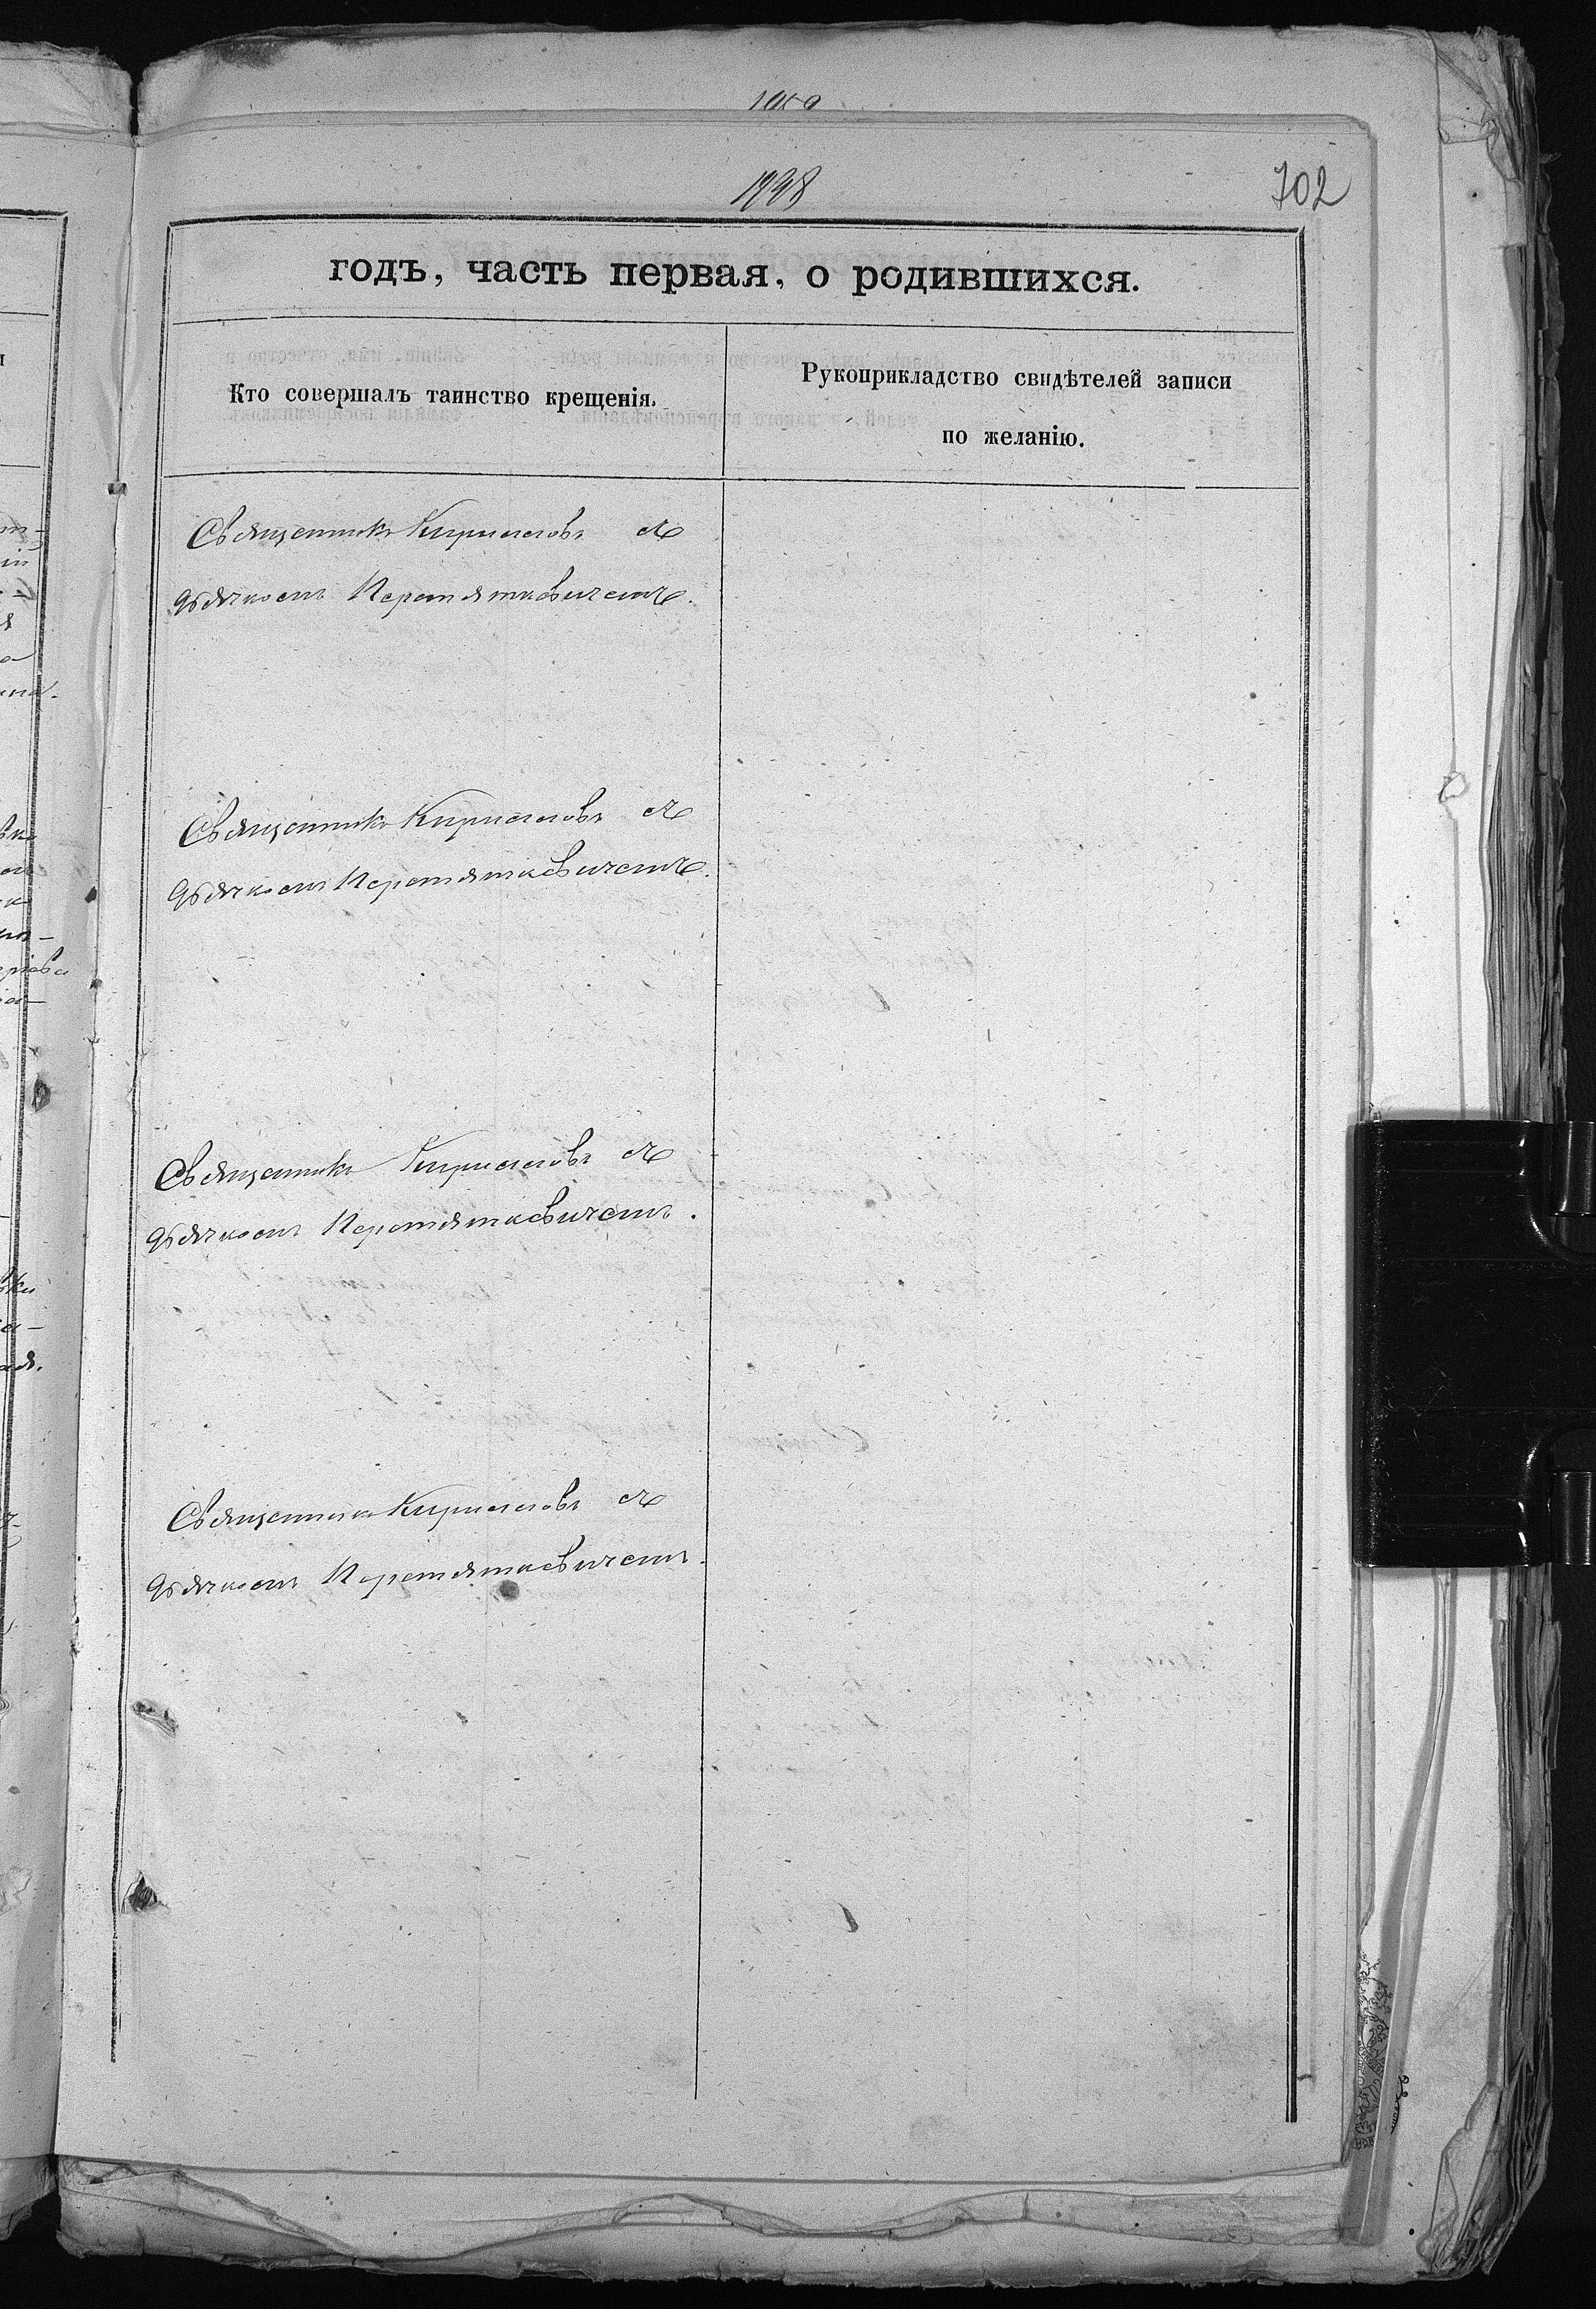 702
годъ, часть первая, о родившихся.
Кто совершалъ таинство крещенія.
Рукоприкладство свидѣтелей записи
по желанію.
Священникъ Кирилловъ съ
дьячкомъ Перетятковичемъ.
Священникъ Кирилловъ съ
дьячкомъ Перетятковичемъ.
Священникъ Кирилловъ съ
дьячкомъ Перетятковичемъ.
Священникъ Кирилловъ съ
дьячкомъ Перетятковичемъ.